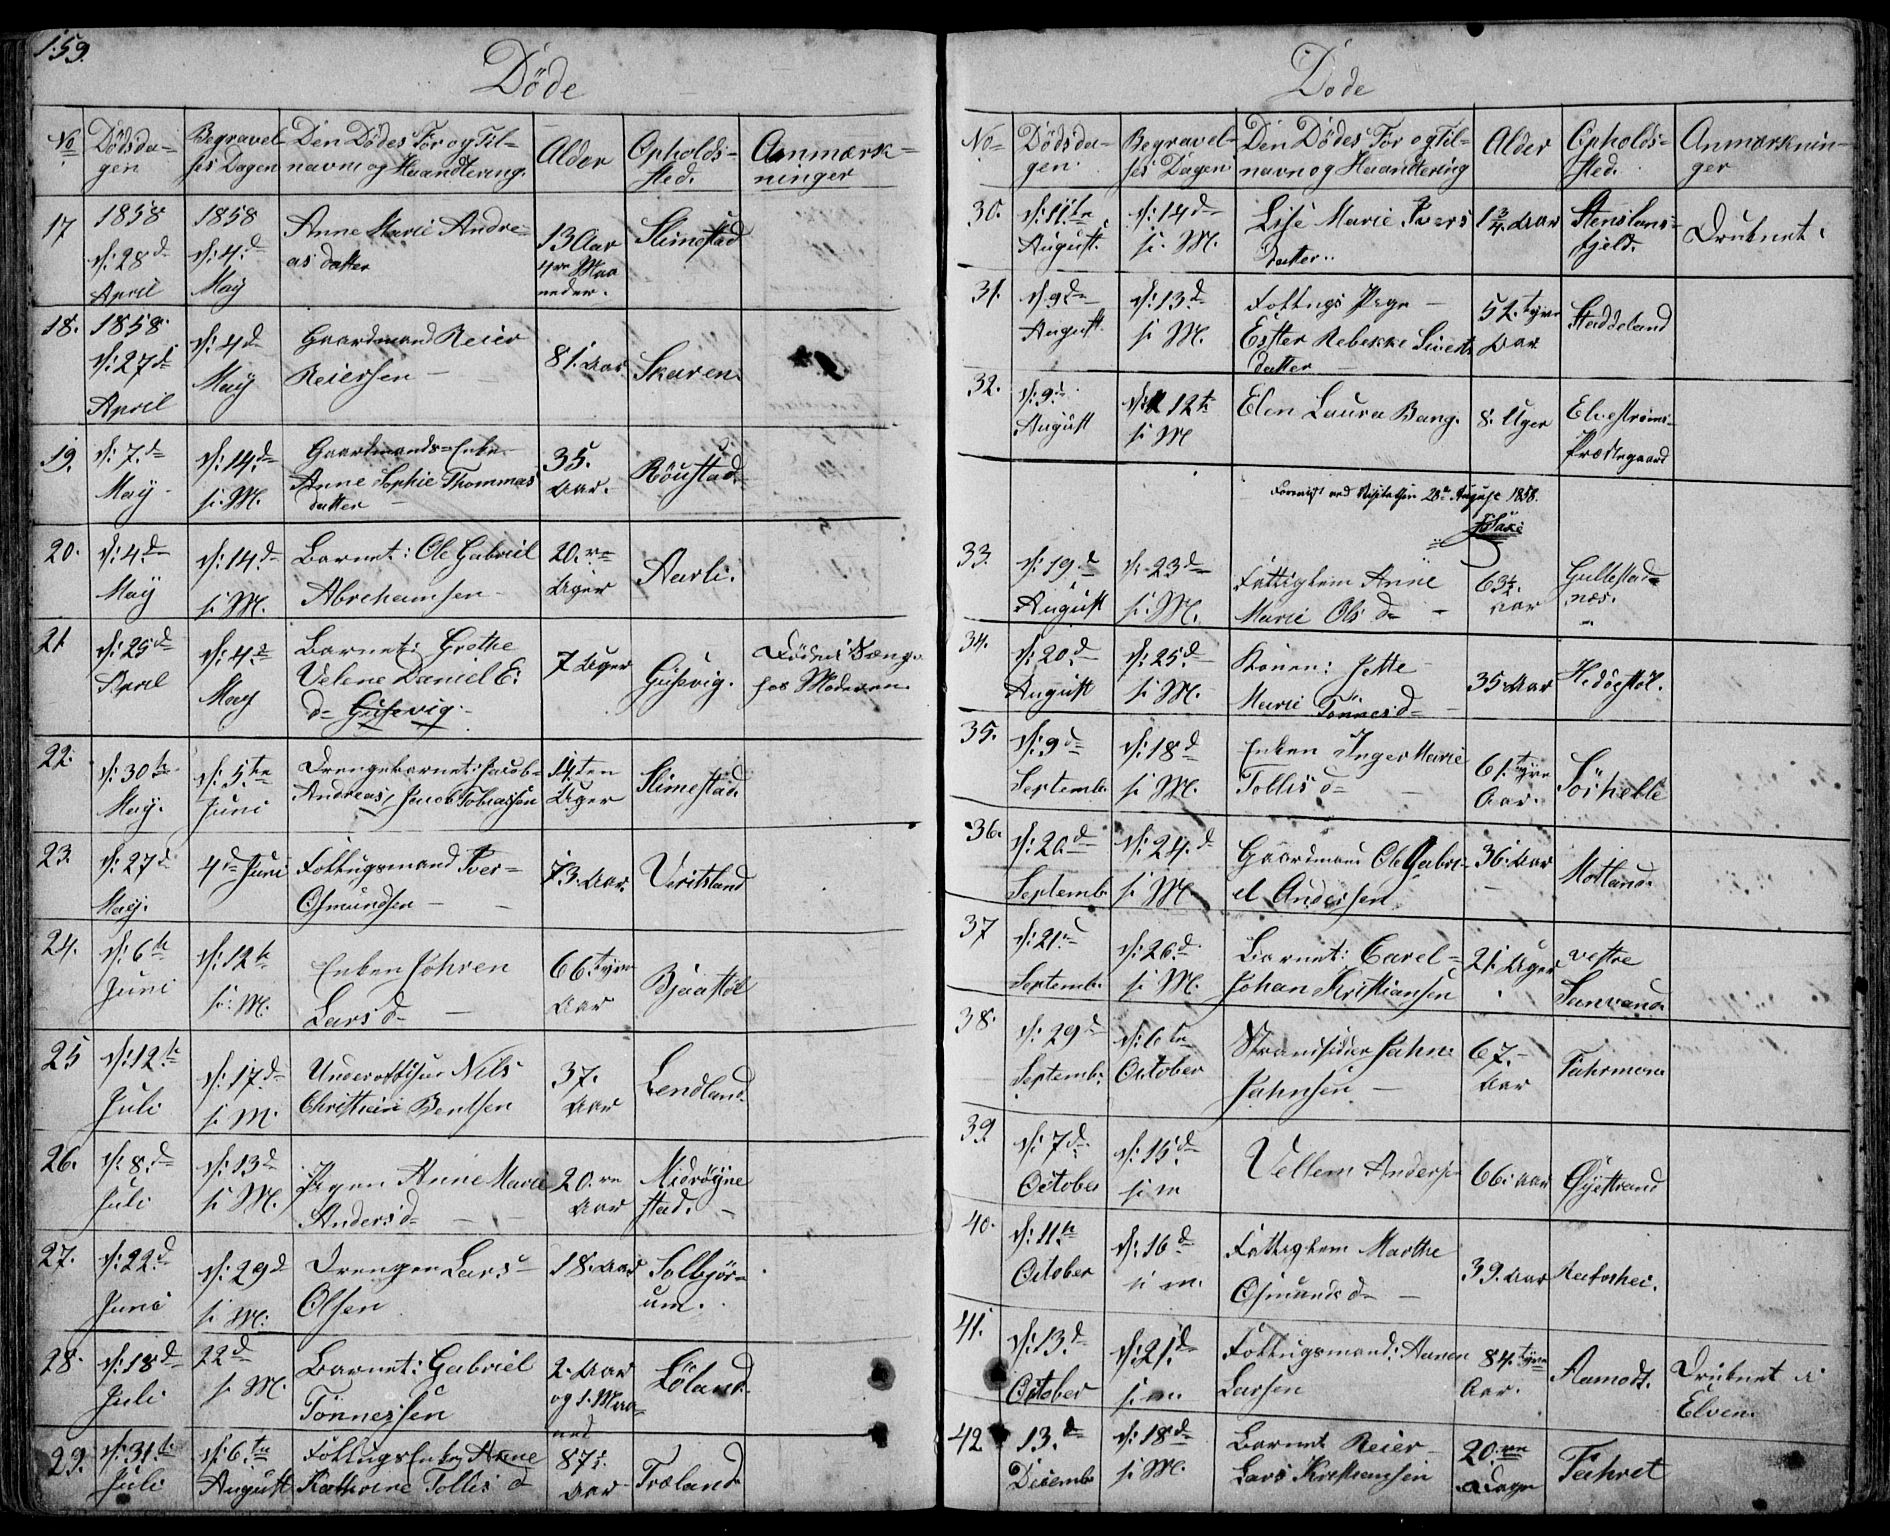 159.
Döde
No
Dödsda-
gen
Begravel-
ses Dagen
Den Dödes For og Til-
navn og Haandtering.
Alder
Opholds-
sted.
Anmærk-
ninger
17
1858
d: 28d
April
1858
d: 4d
May
Anne Marie Andre-
as datter
13 Aar
4re Maa
neder.
Slimestad
18.
1858.
d: 27d
April
d: 4d
May
Gaardmand Reier
Reiersen
81. Aar
Skaren.
19.
d: 7d
May
d: 14d
s: M.
Gaardmands-Enke
Anne Sophie Thommas
datter
35.
Aar.
Röustad
20.
d: 4d
May
d: 14d
s: M.
Barnet: Ole Gabriel
Abrehamsen
20.ve
Uger
Aarli.
21
d: 25d
April
d: 4d
May
Barnet: Grethe
Velene Daniel E:
d= Gusevig.
7 Uger
Gusevig.
hos Moderen.
22.
d: 30te
May.
d: 5te
Juni
Drengebarnet: Jacob
Andreas, Jacob Tobiassen
14.ten
Uger
Slimestad.
23.
d: 27d
May.
4de Juni
Föttugsmand Iver
Osmundsen
73. Aar.
Veritsland
24.
d: 6te
Juni
d: 12te
s: M.
Enken Johren
Lars d=
66. tyve
Aar
Bjaastöl
25
d: 12te
Juli
d: 17d
s: M.
Underoffiser Nils
Christian Bentsen
37.
Aar
Lendland.
26.
d: 8d
Juli
d: 13d
s: M.
Pigen Anne Marie
Anders d=
20.ve
Aar
Midröyne
stad.
27.
d: 22d
Juni
d: 29d
s: M.
Drengen Lars
Olsen
18. Aar
Solbjör-
um.
28.
d: 18d
Juli
22d
s: M.
Barnet: Gabriel
Tönnessen
2. Aar
og 1. Maa-
ned
Löland.
29.
d: 31te
Juli
d: 6te
August
Föttugs Enken Anne
Kathrine Tollis d
87½.
Aar
Træland
Döde
No
Dödsda-
gen.
Begravel-
ses Dagen
Den Dödes For og Til-
navn og Haandtering
Alder
Opholds-
sted.
Anmærknin-
ger
30.
d: 11te
August.
d: 14d
s: M.
Lise Marie Ivers
datter.
1¾. Aar
Stensland-
fjeld.
Druknet.
31.
d: 9d
August.
d: 13d
s: M.
Föttugs Pige
Ester Rebekke Siverts
datter
52. tyve
Aar
Staddeland
32.
d: 9d
August
d: 12te
s: M
Elen Laura Bang.
8. Uger
Præstegaard
Foreviist ved Visitatsen 28de August 1858.
33.
d: 19d
August
d: 23d
s: M.
Fattiglem Anne
Marie Ols d=
Aar
Gullestad
næs.
34.
d: 20d
August
d: 25d
s: M.
Konen: Jette
Marie Tönnes d=
35 Aar
Hedöestöl.
35.
d: 9d
Septemb.
d: 18d
s: M.
Enken Inger Marie
Tollis d=
61. tyve
Aar.
Sörhelle
36.
d: 20d
Septemb.
d: 24. d
s: M.
Gaardmand Ole Gabri-
el Andersen
36. Aar
Motland.
37
d: 21d
Septemb.
d: 26d
s: M.
Barnet: Carel
Johan Kristiansen
21. Uger
vestre
Sanvand.
38.
d: 29d
Septemb.
d: 6te
October
Strandsidder Jahn
Jahnsen
67.
Aar
39
d: 7d
October
d: 15d
s: m
Vellem Anders
66: Aar
Öyestrand
40.
d: 11te
October
d: 16d
s: m.
Fattiglem Marthe
Osmunds d=
39. Aar
41.
d: 13d
October
d: 21d
s: m.
Föttugsmand: Aanen
Larsen
84. tyve
Aar.
Aamodt.
Druknet i
Elven.
42
13. d
Desemb.
d: 18d
s: M.
Barnet Reier
Lars Kristiansen
20.ve
Dage
Fahret